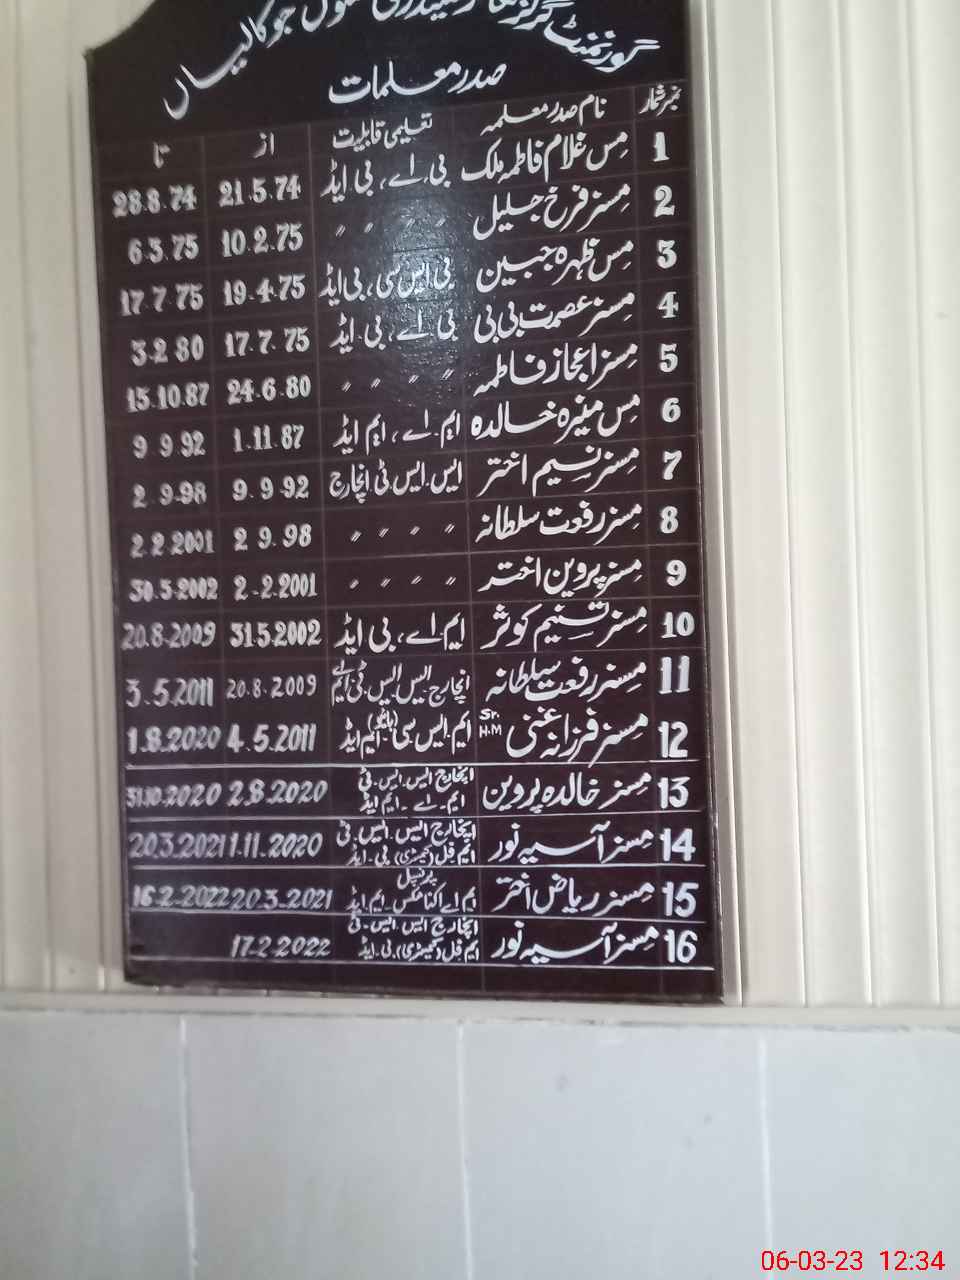 گورنمنٹ گرلز ہائر سیکنڈری سکول جوکالیاں
صدر معلمات
نمبر شمار نام صدر معلمہ تعلیمی قابلیت از تا
1 مس غلام فاطمہ ملک بی۔اے، بی ایڈ 21.5.74 28.8.74
2 مسز فرخ جلیل " " " " 10.2.75 6.3.75
3 مس ظہرہ جبین بی ایس سی، بی ایڈ 19.4.75 17.7.75
4 مسز عصمت بی بی بی اے، بی۔ایڈ 17.7.75 3.2.80
5 مسز اعجاز فاطمہ " " " " 24.6.80 15.10.87
6 مس منیزہ خالدہ ایم۔اے، ایم ایڈ 1.11.87 9.9.92
7 مسز نسیم اختر ایس۔ایس ٹی انچارج 9.9.92 2.9.98
8 مسز رفعت سلطانہ " " " " 2.9.98 2.2.2001
9 مسز پروین اختر " " " " 2.2.2001 30.5.2002
10 مسز تسنیم کوثر ایم اے، بی ایڈ 31.5.2002 20.8.2009
11 مسز رفعت سلطانہ انچارج ایس ایس ٹی ایم اے 20.8.2009 3.5.2011
12 مسز فرزانہ غنی Sr. H.M ایم ایس سی (باٹنی) ایم ایڈ 4.5.2011 1.8.2020
13 مسز خالدہ پروین انچارج ایس۔ایس۔ٹی ایم۔اے۔ایم ایڈ 2.8.2020 31.10.2020
14 مسز آسیہ نور انچارج ایس۔ایس۔ٹی ایم فل (کیمسٹری) بی۔ایڈ 1.11.2020 20.3.2021
15 مسز ریاض اختر پرنسپل ایم اے اکنامکس۔ایم ایڈ 20.3.2021 16.2.2022
16 مسز آسیہ نور انچارج ایس۔ایس۔ٹی ایم فل (کیمسٹری) بی۔ایڈ 17.2.2022
06-03-23 12:34